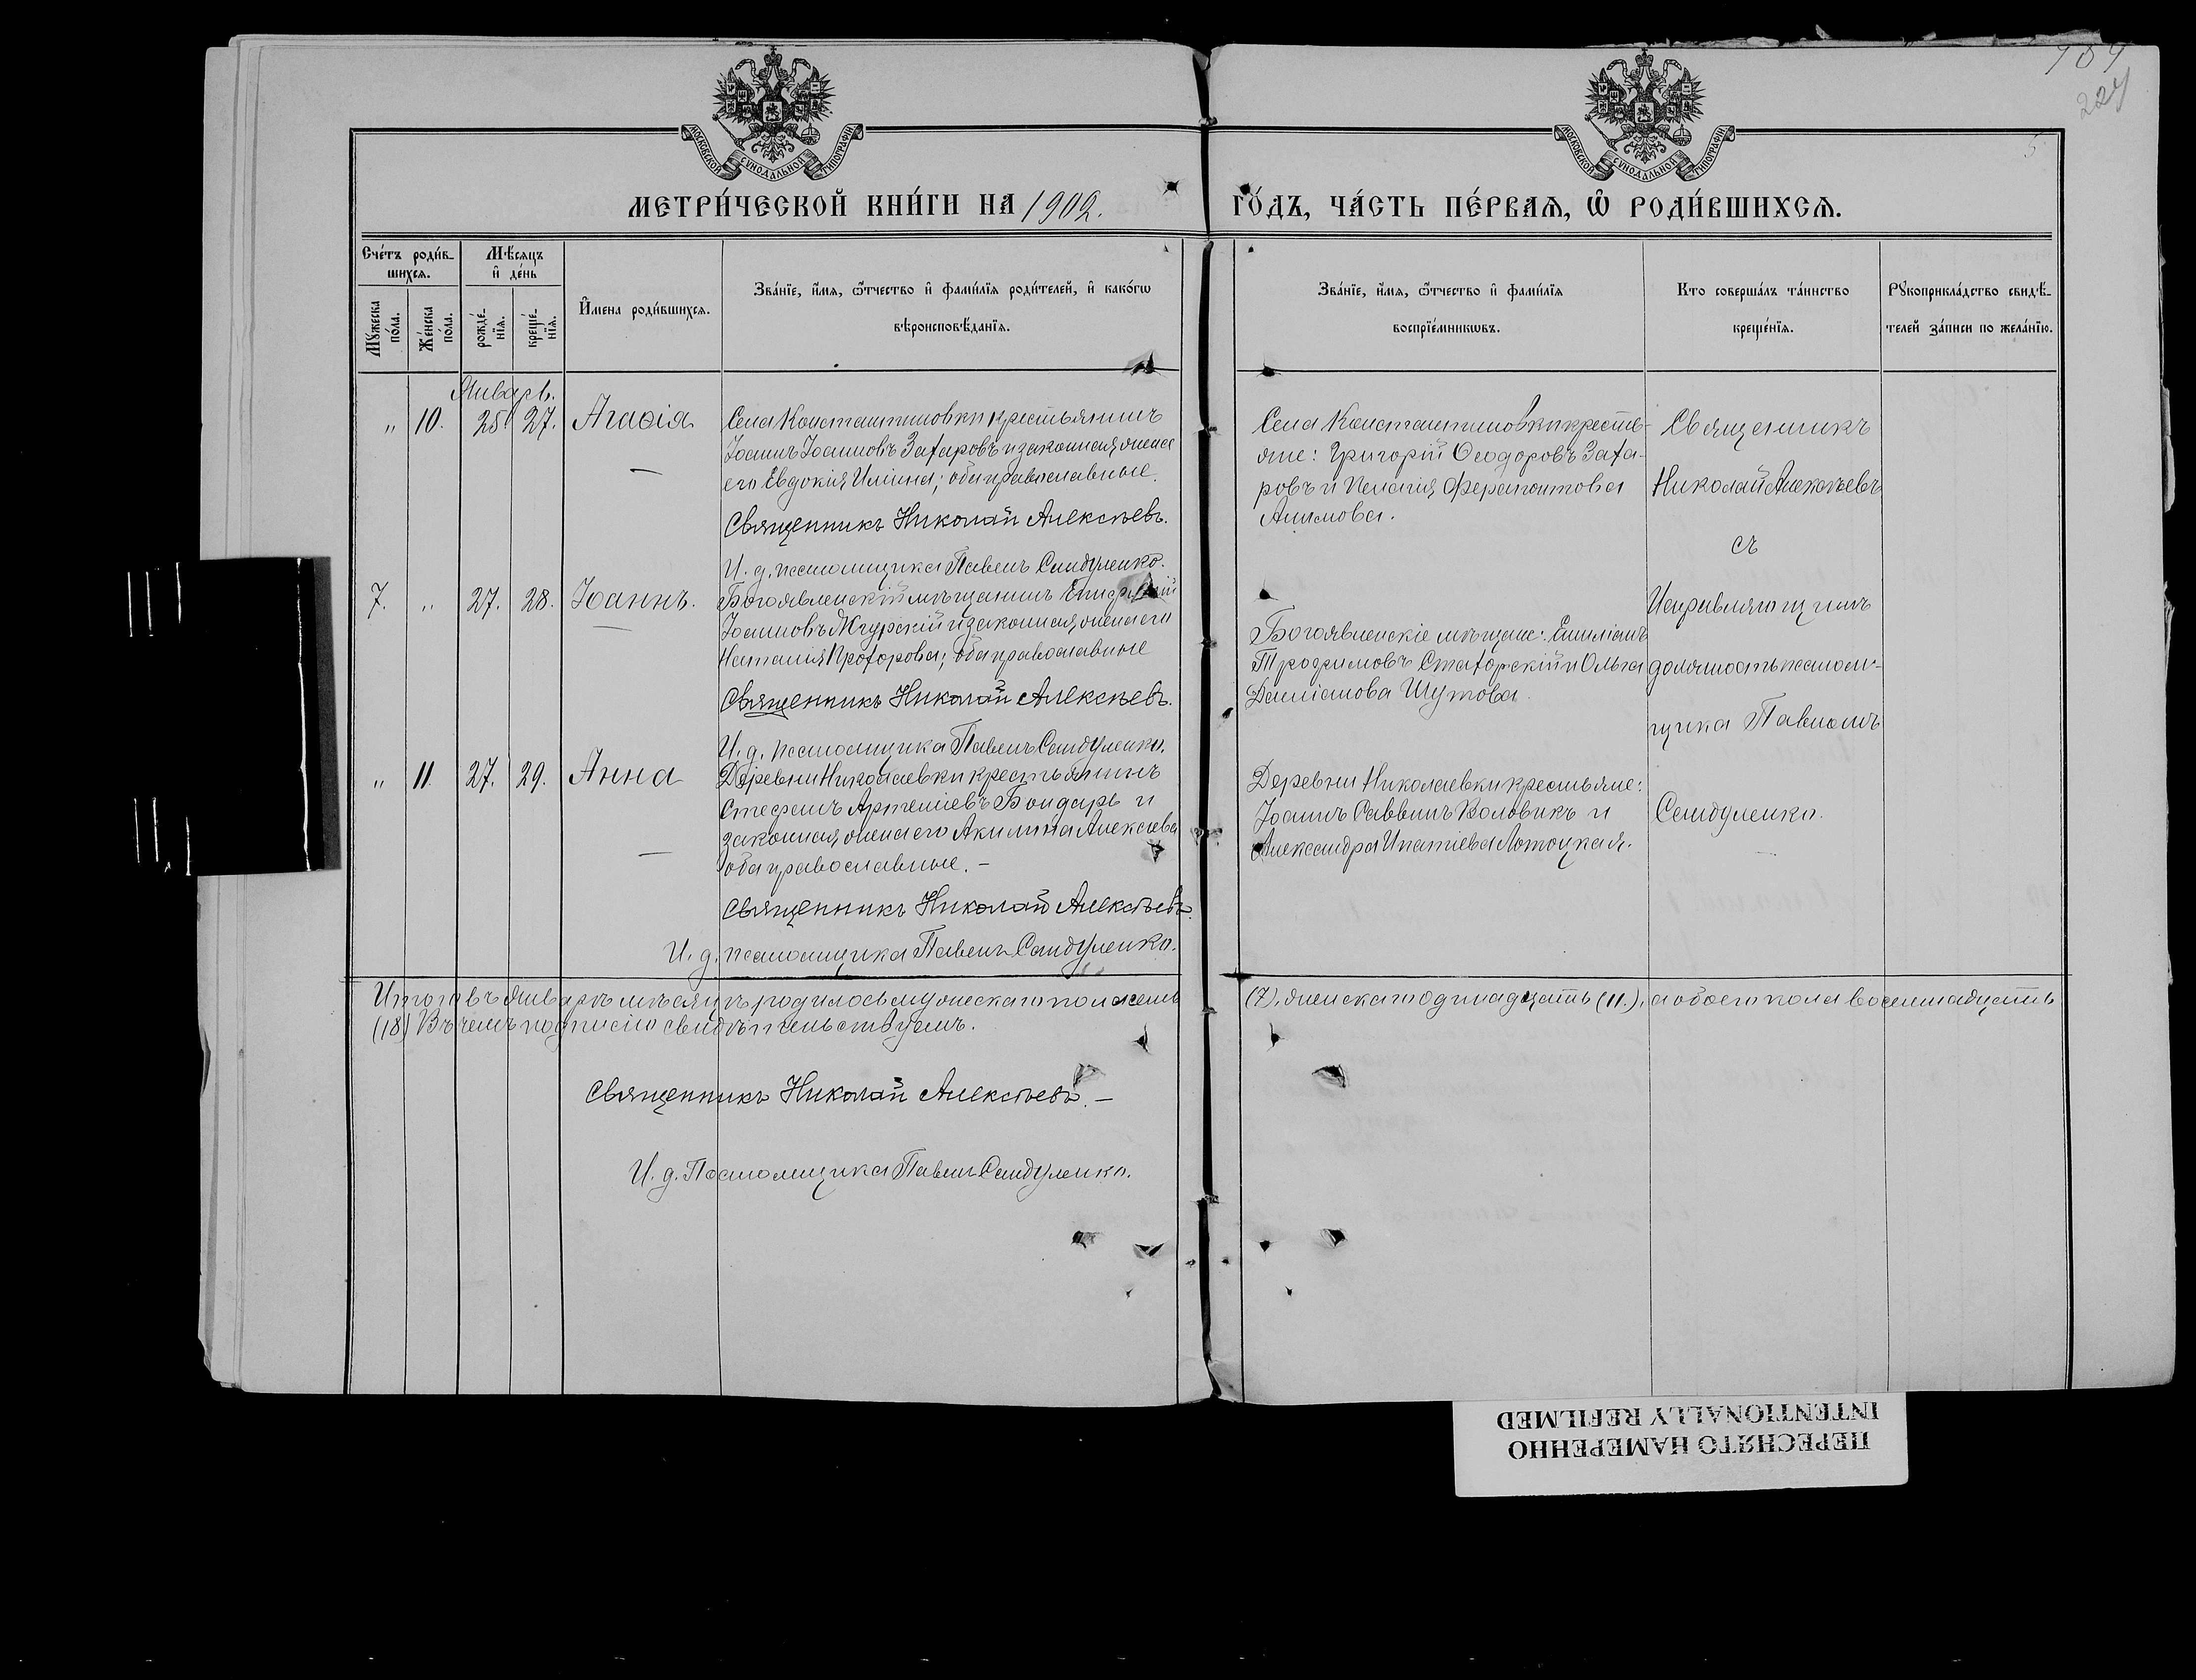 984
224
5
МОСКОВСКОЙ СѴНОДАЛЬНОЙ ТИПОГРАФІИ
МОСКОВСКОЙ СѴНОДАЛЬНОЙ ТИПОГРАФІИ
МЕТРИ́ЧЕСКОЙ КНИ́ГИ НА 1902.
ГО́ДЪ, ЧА́СТЬ ПЕ́РВАѦ, Ѽ РОДИ́ВШИХСѦ.
Сче́тъ роди́в-
шихсѧ.
Мѣ́сѧцъ
и҆ де́нь
Мꙋ́жеска
по́ла.
Же́нска
по́ла.
рожде́-
нїѧ.
креще́-
нїѧ.
И҆мена роди́вшихсѧ.
Зва́нїе, и҆́мѧ, ѻ҆́тчество и҆ фами́лїѧ роди́телей, и҆ како́гѡ
вѣроисповѣ́данїѧ.
Зва́нїе, и҆́мѧ, ѻ҆́тчество и҆ фами́лїѧ
воспрїе́мникѡвъ.
Кто соверша́лъ та́инство
креще́нїѧ.
Рꙋкоприкла́дство свидѣ́-
телей за́писи по жела́нїю.
Январь.
" 10. 25. 27. Агаѳія
Села Константиновки крестьянинъ
Іоаннъ Іоанновъ Захаровъ и законная жена
его Евдокія Ильина; оба православные.
Священникъ Николай Алексѣевъ.
И. д. псаломщика Павелъ Сандуленко.
Села Константиновки кресть-
яне: Григорій Ѳеодоровъ Заха-
ровъ и Пелагія Ферапонтова
Акимова.
Священникъ
Николай Алексѣевъ
съ
Исправляющимъ
должность псалом-
щика Павломъ
Сандуленко.
7. " 27. 28. Іоаннъ.
Богоявленскій мѣщанинъ
Іоанновъ Жгурскій и законная жена его
Наталія Прохорова; оба православные
Священникъ Николай Алексѣевъ.
И. д. псаломщика Павелъ Сандуленко.
Богоявленскіе мѣщане: Емиліанъ
Трофимовъ Стахорскій и Ольга
Даміанова Шутова.
" 11. 27. 29. Анна
Деревни Николаевки крестьянинъ
Стефанъ Артеміевъ Бондарь и
законная жена его Акилина Алексѣева
оба православные. –
Священникъ Николай Алексѣевъ.
И. д. псаломщика Павелъ Сандуленко.
Деревни Николаевки крестьяне:
Іоаннъ Саввинъ Воловикъ и
Александра Ипатіева Лотоцкая.
Итого въ Январѣ мѣсяцѣ родилось мужескаго пола семь (7), женскаго одинадцать (11.), а обоего пола восемнадцать
(18) Въ чемъ подписью свидѣтельствуемъ.
Священникъ Николай Алексѣевъ. –
И. д. Псаломщика Павелъ Сандуленко.
ПЕРЕСНЯТО НАМЕРЕННО
INTENTIONALLY REFILMED